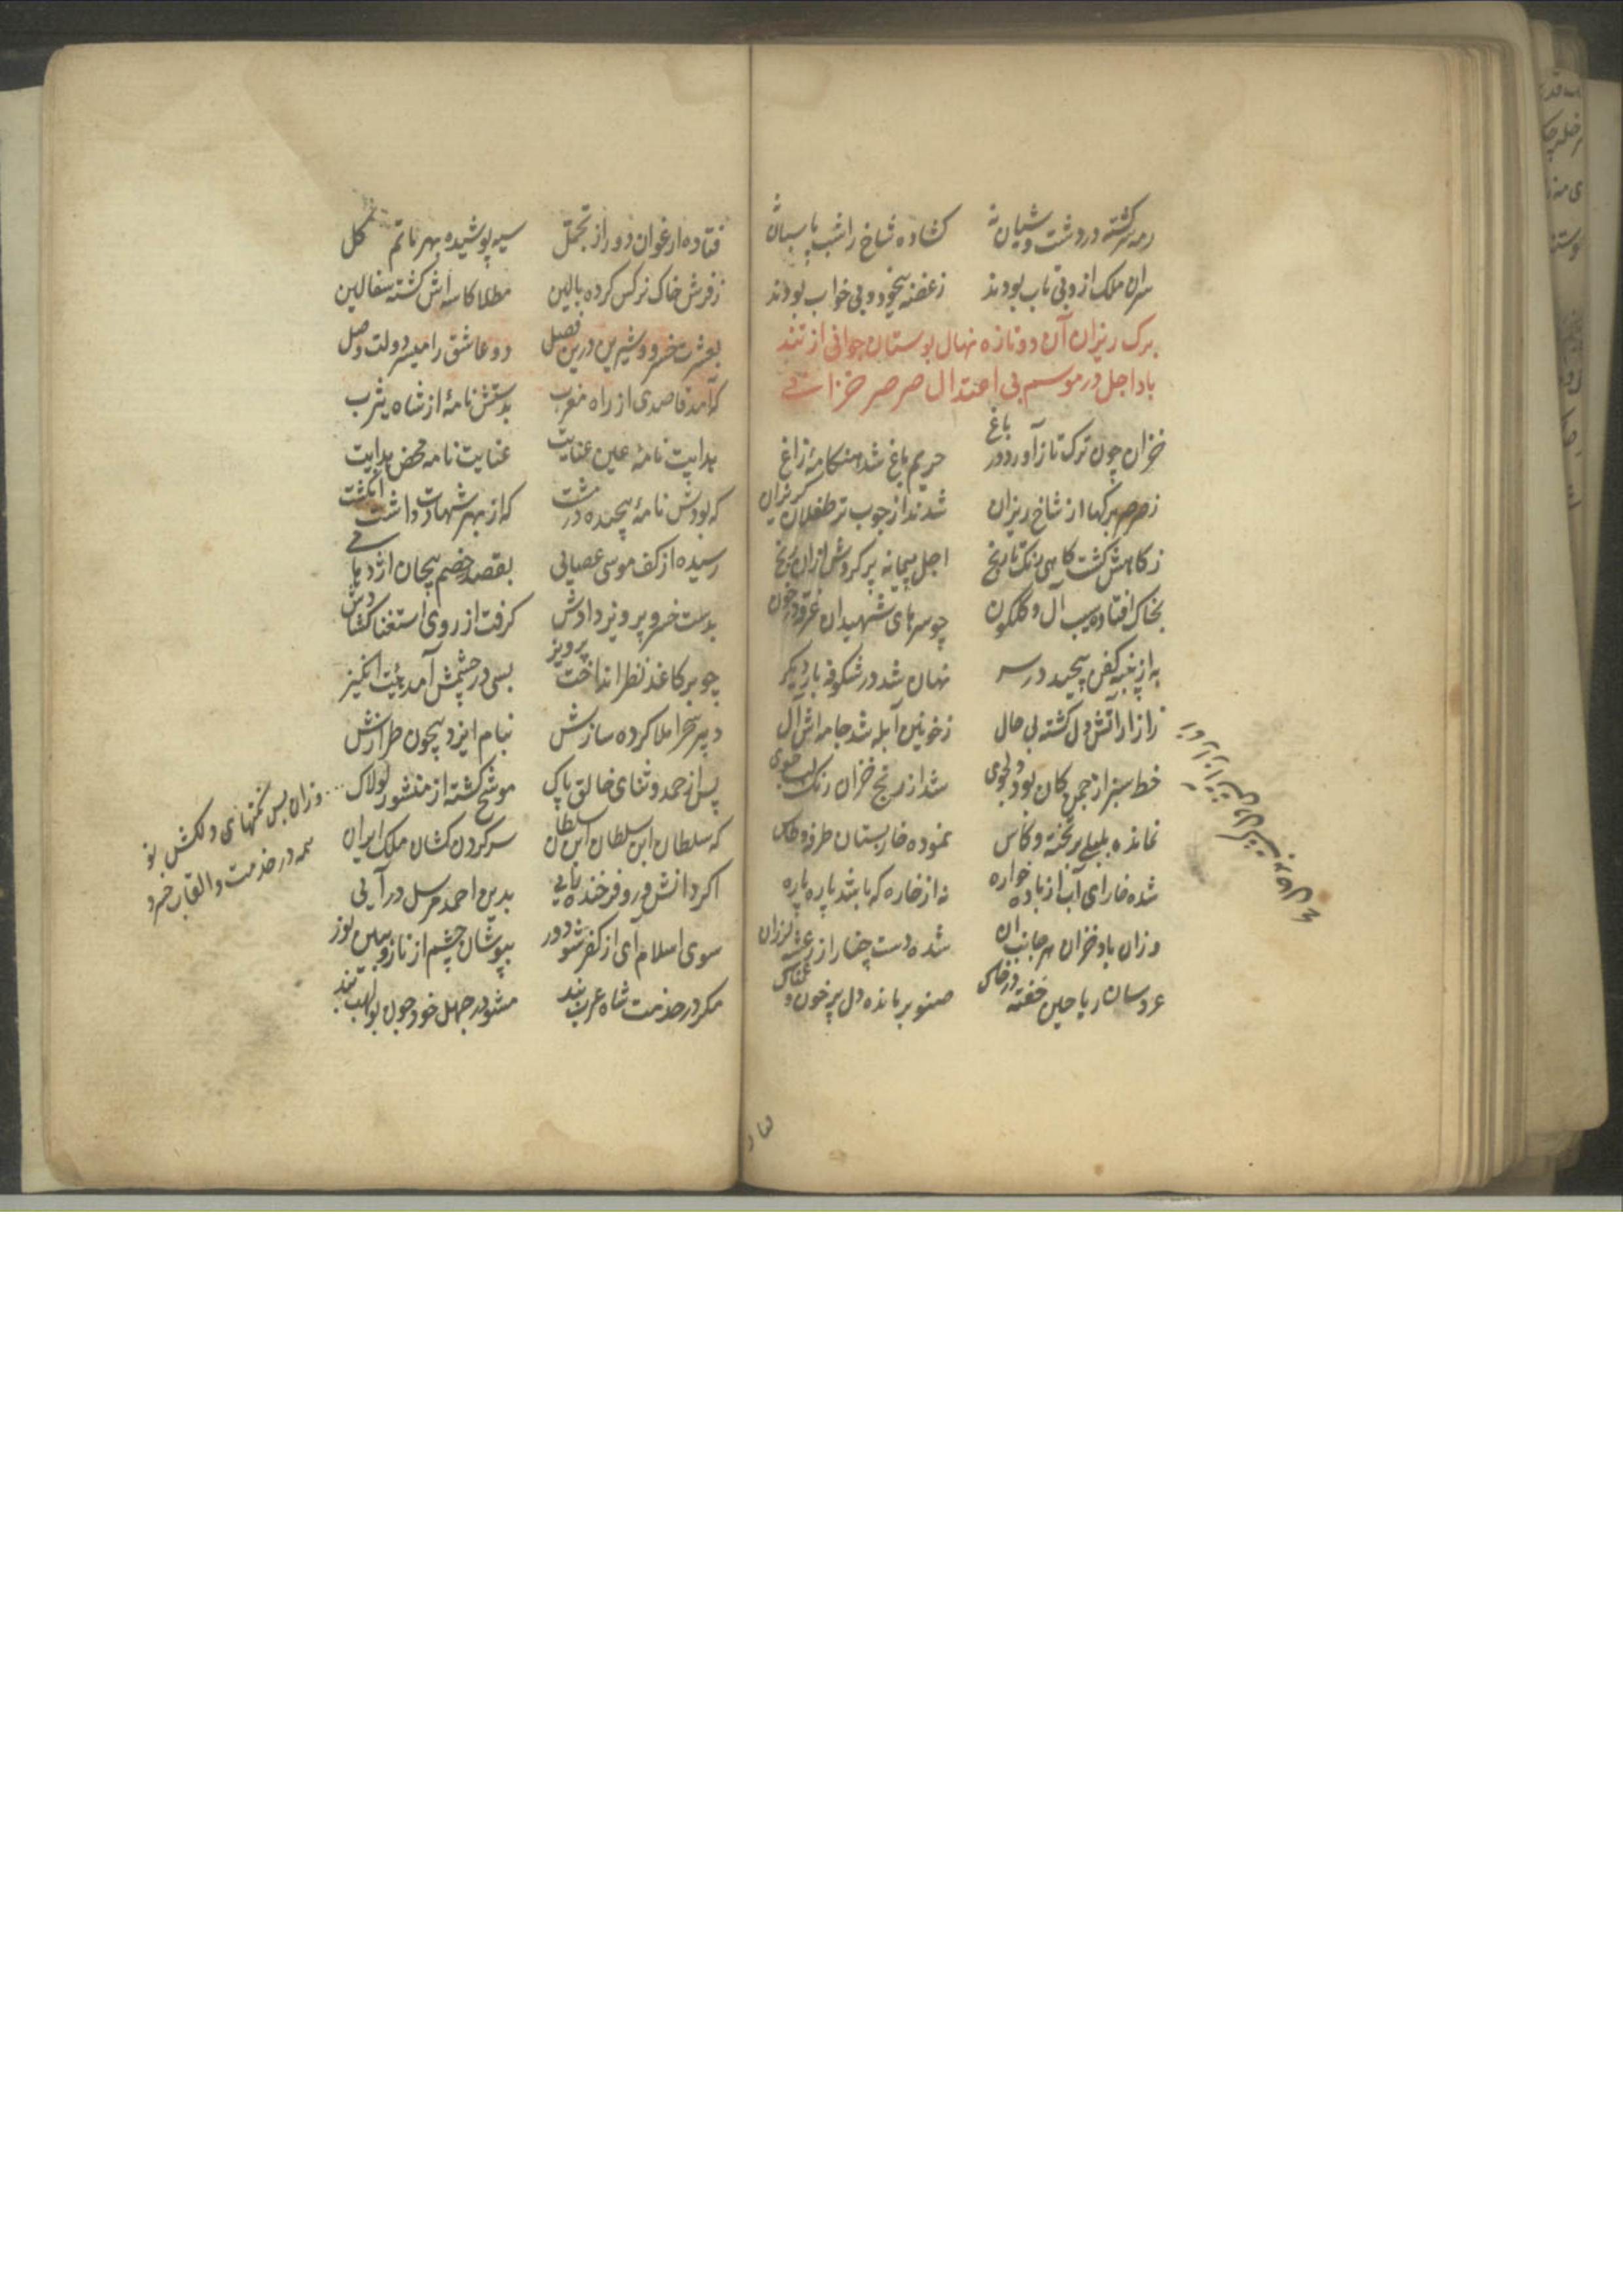 رمه سرکشته در دشت و شبان نه کشاده شاخ را شب پاسبان نه
سران ملک ازو بی تاب بودند ز غصه بیخود و بی خواب بودند
برک ریزان آن دو تازه نهال بوستان جوانی از تند
باد اجل در موسم بی اعتدال صرصر خزانی
خزان چون ترک تاز آورد در باغ حریم باغ شد هنکامهٔ زاغ
ز صرصر برکها از شاخ ریزان شدند از چوب تر طفلان کریزان
ز کاهش کشت کاهی رنک نارنج اجل پیمانه پر کردش از آن رنج
بخاک افتاده سیب آل و کلکون چو سرهای شهیدان غرقه در خون
به از پنبه کفن پیچید در سر نهان شد در شکوفه بار دیکر
ز آزار آتشی دل کشته بی حال ز خونین آبله شد جامه اش آل
خط سبز از چمن کان بود دلجوی شد از رنج خزان رنک لب جوی
نمانده بلبلی بر تخته و کاس نموده خاربستان طرفه
شده خارای آب از باده خواره نه از خاره که باشد پاره پاره
وزان باد خزان هر جانب ان شده دست چنار از رعشه لرزان
عروسان ریاحین خفته در خاک صنوبر مانده دل پر خون و غمناک
فتاده ارغوان دور از تجمل سیه پوشیده بهر ماتم کل
ز فرش خاک نرکس کرده بالین مطلا کاسه اش کشته سفالین
بعشرت خسرو و شیرین درین فصل دو عاشق را میسر دولت وصل
که آمد قاصدی از راه مغرب بدستش نامهٔ از شاه یثرب
هدایت نامهٔ عین عنایت عنایت نامه محض هدایت
که بودش نامهٔ پیچنده در مشت که از بهر شهادت داشت انکشت
رسیده از کف موسی عصایی بقصد خصم پیچان اژدهایی
بدست خسرو پرویز دادش کرفت از روی استغنا کشادش
چو بر کاغذ نظر انداخت پرویز بسی در چشمش آمد هیئت انکیز
دبیر سحر املا کرده سازش بنام ایزد بیچون طرازش
پس از حمد و ثنای خالق پاک موشح کشته از منشور لولاک
وزان پس نکتهای دلکش نو
همه در خدمت و القاب خسرو
که سلطان ابن سلطان ابن سلطان سر کردن کشان ملک ایران
اکر دانشور و فرخنده رایی بدین احمد مرسل درآیی
سوی اسلام آی از کفر شو دور بپوشان چشم از نار و ببین نور
مکر در خدمت شاه عرب بند مشو در جهل خود چون بولهب بند